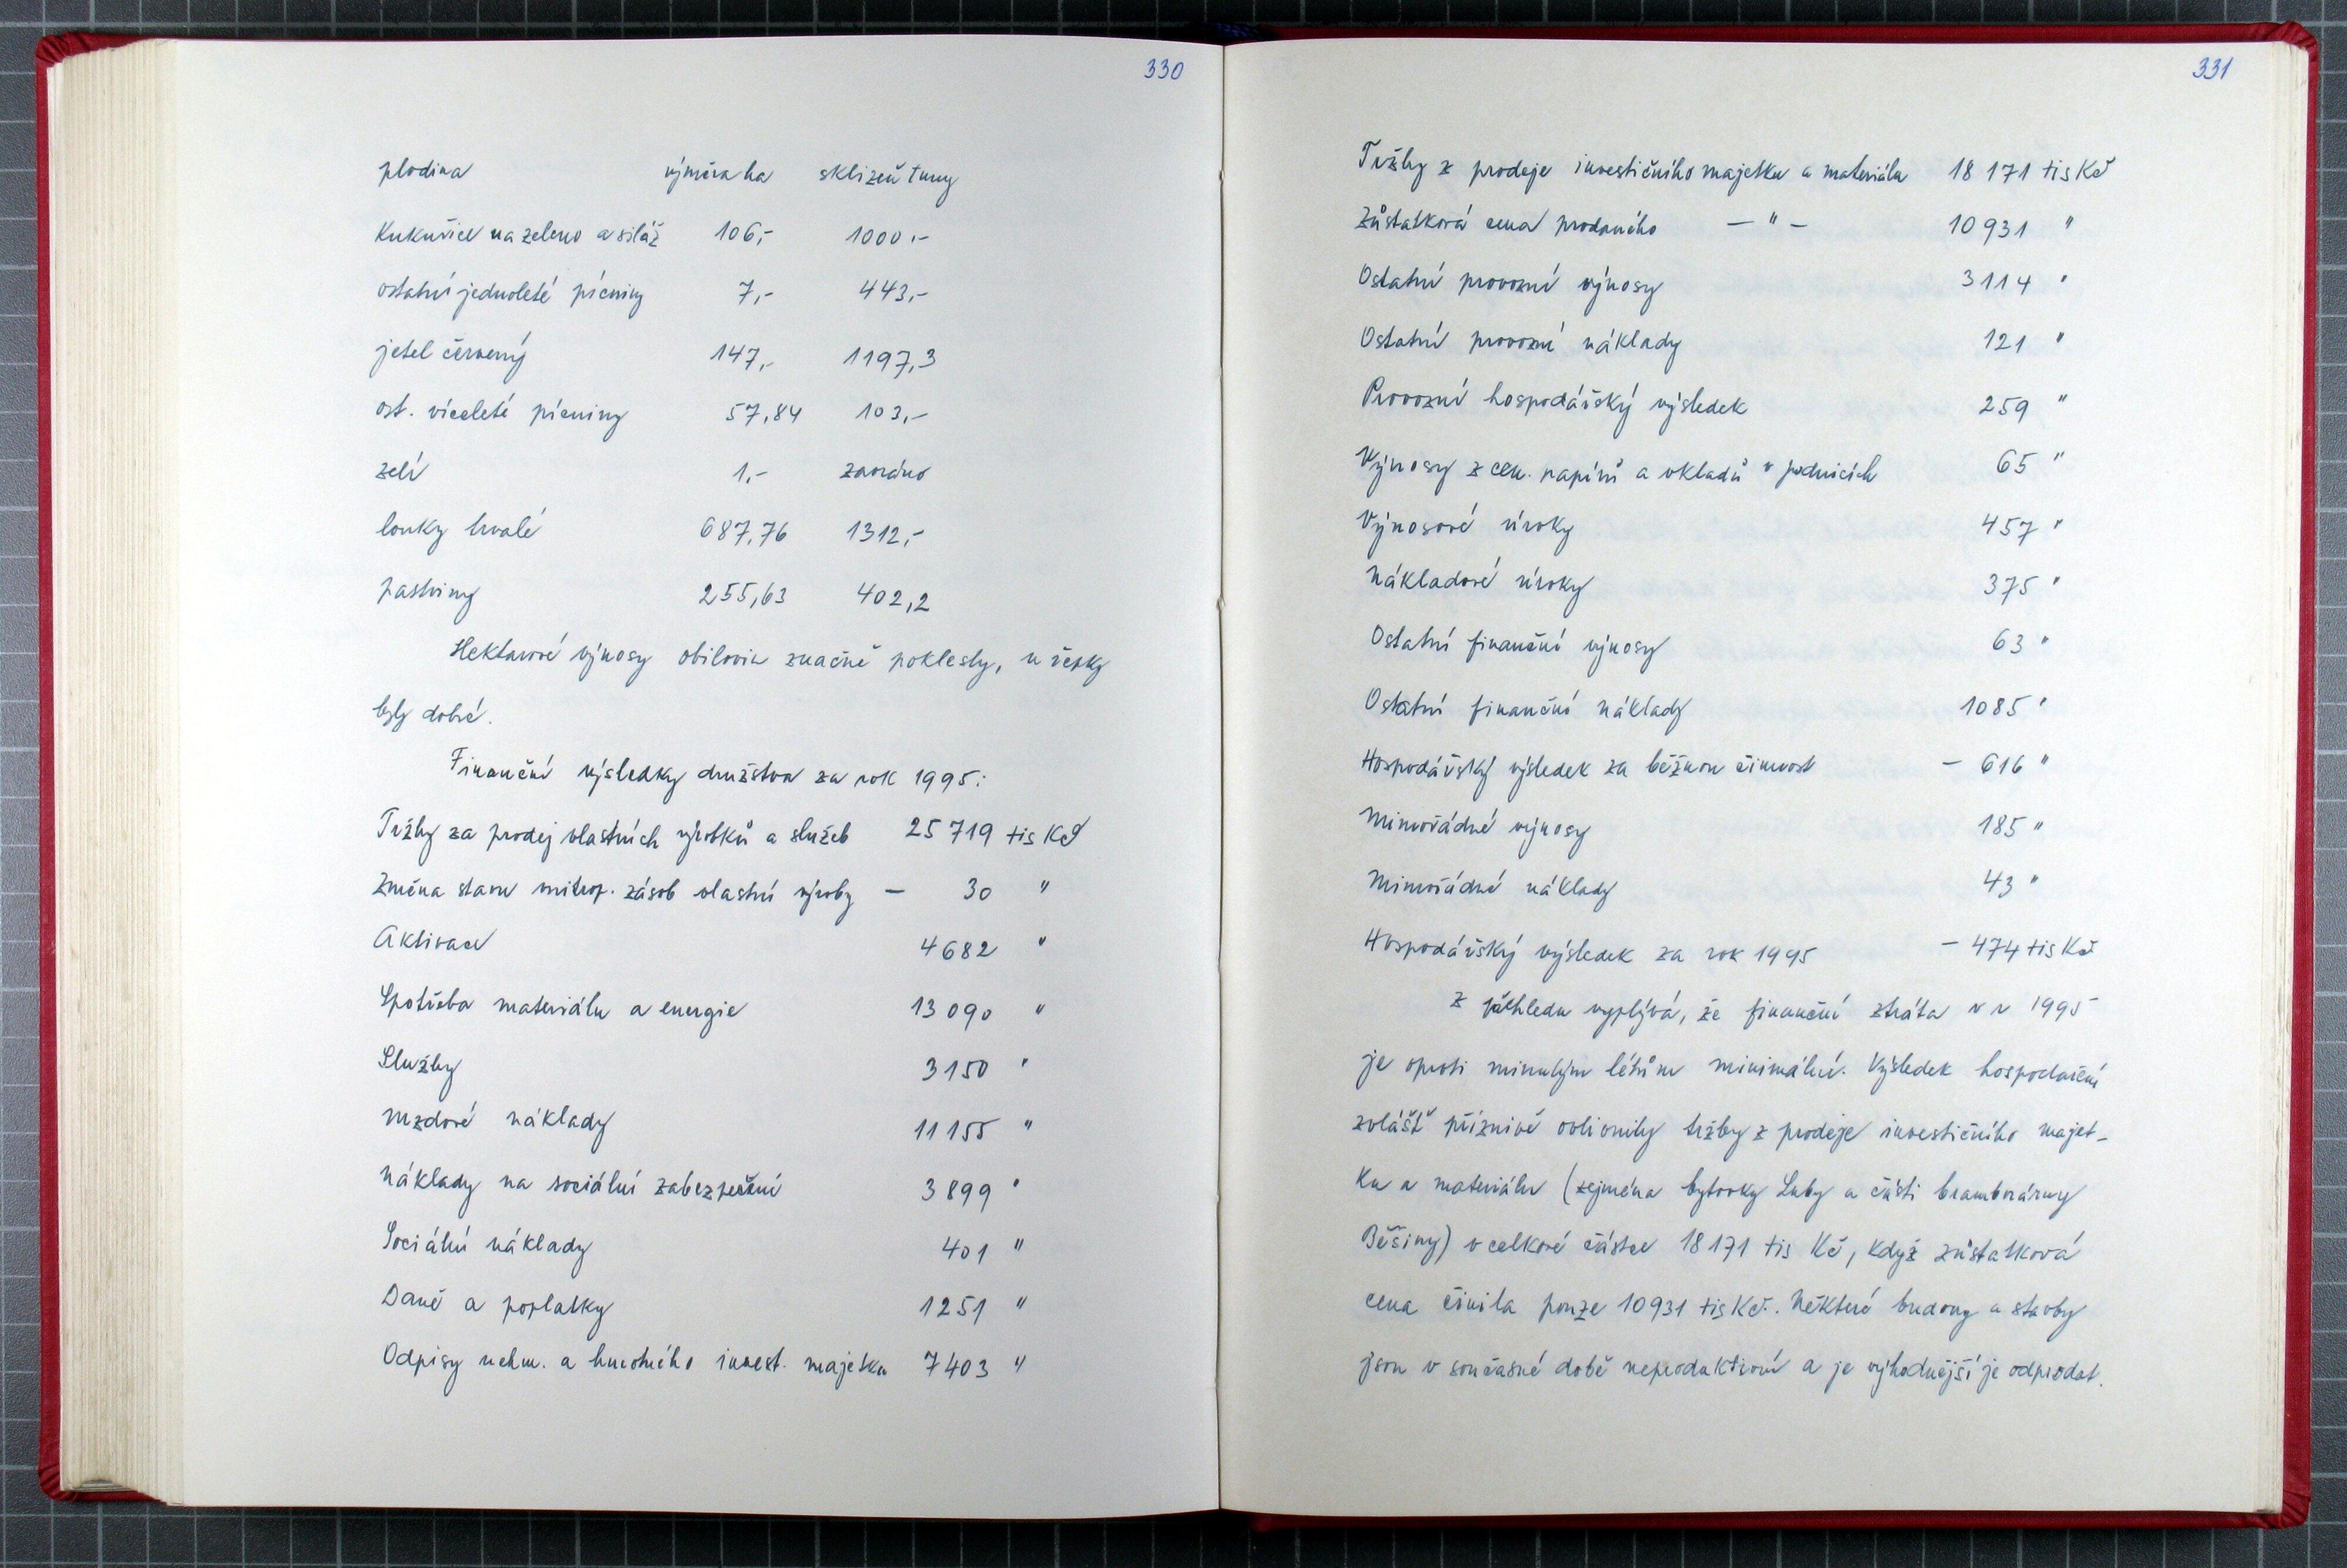 330
plodina výměra ha sklizeň tuny
Kukuřice na zeleno a siláž 106,- 1000,-
ostatní jednoleté pícniny 7,- 443,-
jetel červený 147,- 1197,3
ost. víceleté pícniny 57,84 103,-
zelí 1,- zaoráno
louky trvalé 687,76 1312,-
pastviny 255,63 402,2
Hektarové výnosy obilovin značně poklesly, u řepky
byly dobré.
Finanční výsledky družstva za rok 1995:
Tržby za prodej vlastních výrobků a služeb 25 719 tis Kč
Změna stavu vnitrop. zásob vlastní výroby - 30 "
Aktivace 4682 "
Spotřeba materiálu a energie 13 090 "
Služby 3150 "
Mzdové náklady 11 155 "
Náklady na sociální zabezpečení 3 899 "
Sociální náklady 401 "
Daně a poplatky 1251 "
Odpisy nehm. a hmotného invest. majetku 7403 "
331
Tržby z prodeje investičního majetku a materiálu 18 171 tis Kč
Zůstatková cena prodaného - " - 10 931 "
Ostatní provozní výnosy 3114 "
Ostatní provozní náklady 121 "
Provozní hospodářský výsledek 259 "
Výnosy z cen. papírů a vkladů v podnicích 65 "
Výnosové úroky 457 "
Nákladové úroky 375 "
Ostatní finanční výnosy 63 "
Ostatní finanční náklady 1085 "
Hospodářský výsledek za běžnou činnost - 616 "
Mimořádné výnosy 185 "
Mimořádné náklady 43 "
Hospodářský výsledek za rok 1995 - 474 tis Kč
Z přehledu vyplývá, že finanční ztráta v r 1995
je oproti minulým létům minimální. Výsledek hospodaření
zvlášť příznivě ovlivnily tržby z prodeje investičního majet-
ku a materiálu (zejména bytovky Luby a části bramborárny
Běšiny) v celkové částce 18 171 tis Kč, když zůstatková
cena činila pouze 10 931 tis Kč. Některé budovy a stavby
jsou v současné době neproduktivní a je výhodnější je odprodat.